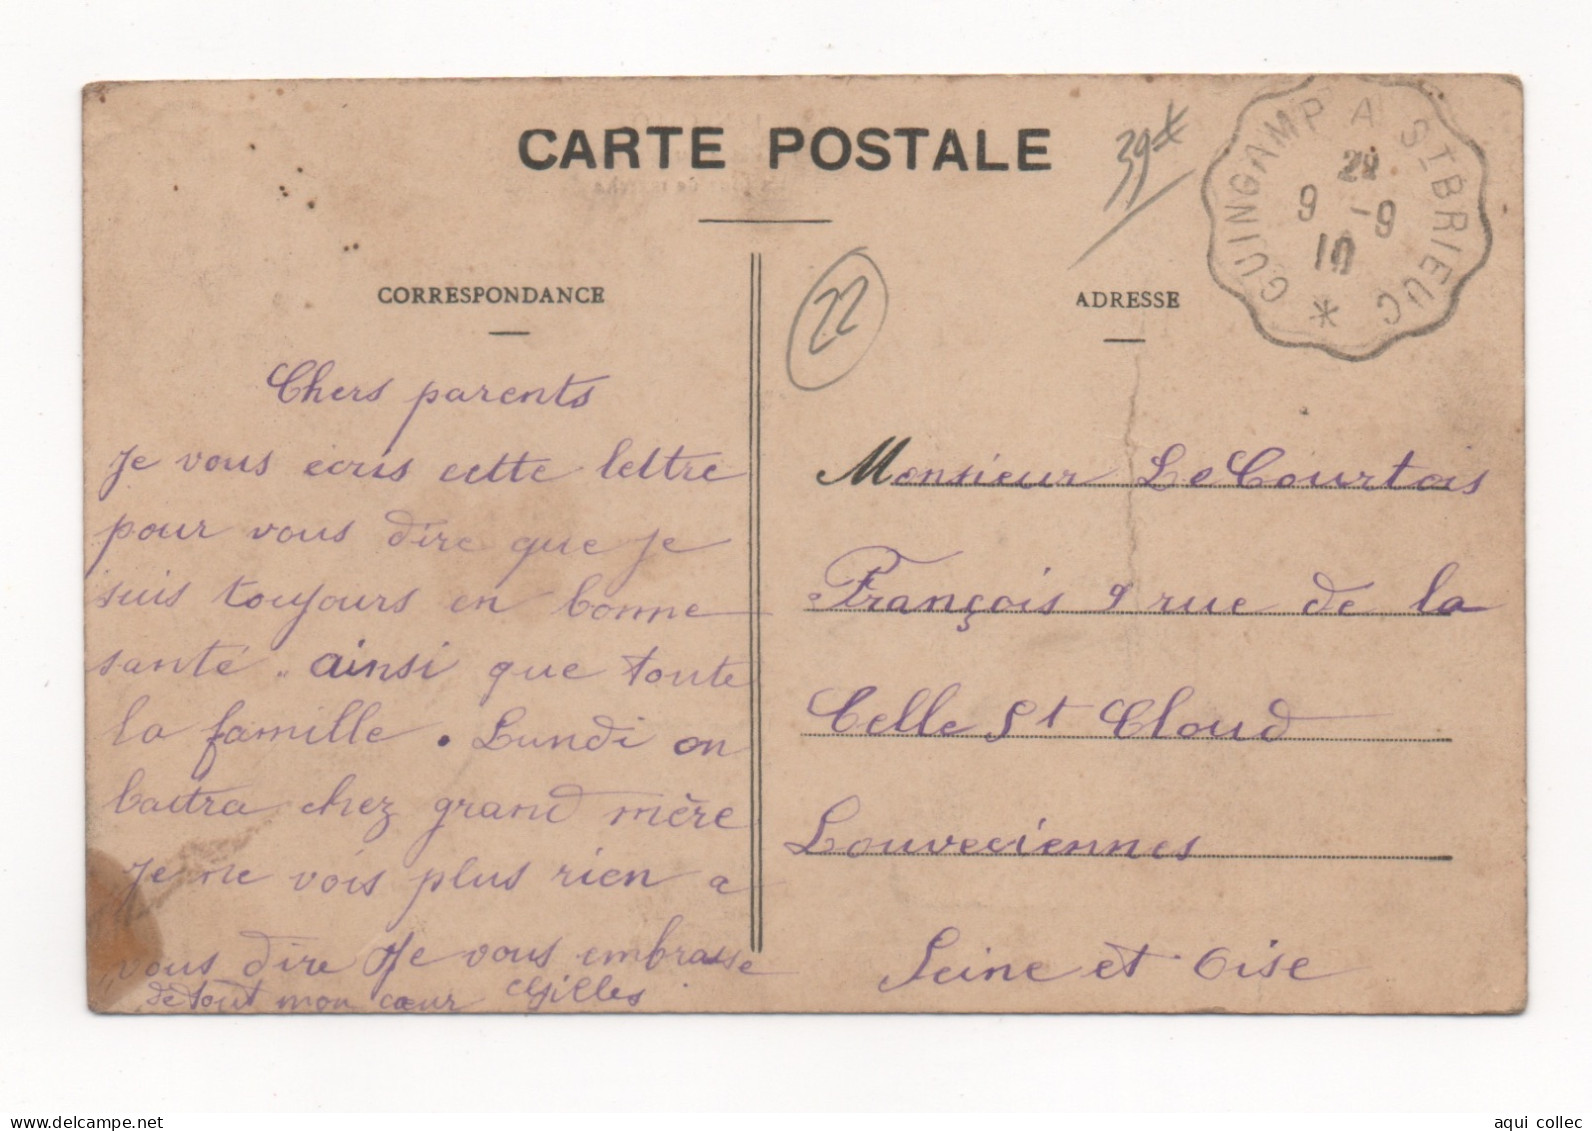 CARTE POSTALE
39
GUINGAMP A ST BRIEUC *
9 -9
10
22
CORRESPONDANCE
ADRESSE
Chers parents
Je vous écris cette lettre
pour vous dire que je
suis toujours en bonne
santé. ainsi que toute
la famille. Lundi on
baitra chez grand mère
Je ne vois plus rien a
vous dire Je vous embrasse
de tout mon cœur Gilles
Monsieur Le Courtois
François 9 rue de la
Celle St Cloud
Louveciennes
Seine et Oise
www.delcampe.net
aqui collec